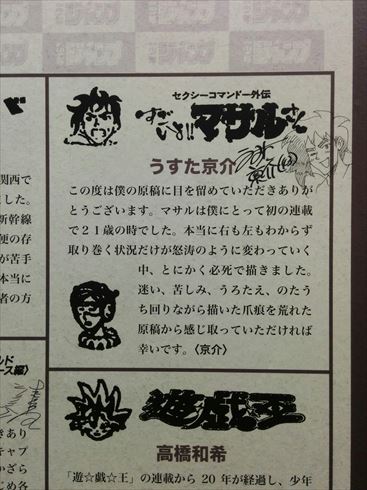 セクシーコマンドー外伝
すごいよ!!マサルさん
うすた京介
この度は僕の原稿に目を留めていただきありが
とうございます。マサルは僕にとって初の連載
で２１歳の時でした。本当に右も左もわからず
取り巻く状況だけが怒涛のように変わっていく
中、とにかく必死で描きました。
迷い、苦しみ、うろたえ、のたう
ち回りながら描いた爪痕を荒れた
原稿から感じ取っていただければ
幸いです。〈京介〉
遊戯王
高橋和希
「遊☆戯☆王」の連載から 20 年が経過し、少年
関西で
した。
新幹線
便の存
が苦手
本当に
者の方
ルド
ース編〉
きあり
キャプ
かざら
じめ各